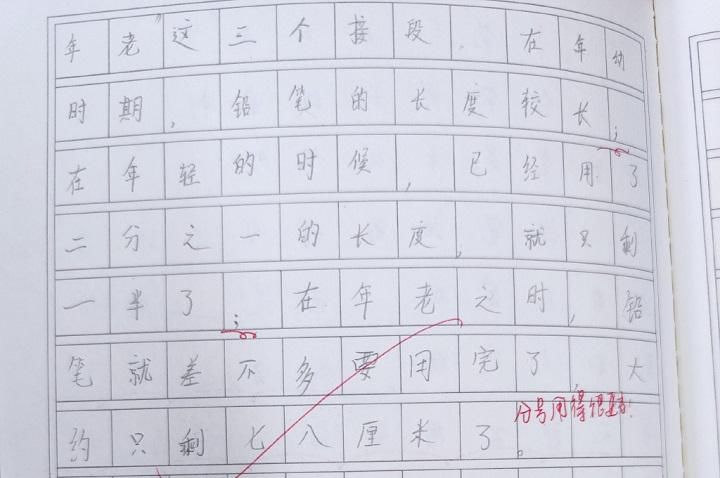 年老”这三个接段，在年幼
时期，铅笔的长度较长；
在年轻的时候，已经用了
二分之一的长度，就只剩
一半了；在年老之时，铅
笔就差不多要用完了，大
约只剩七八厘米了。
分号用得很